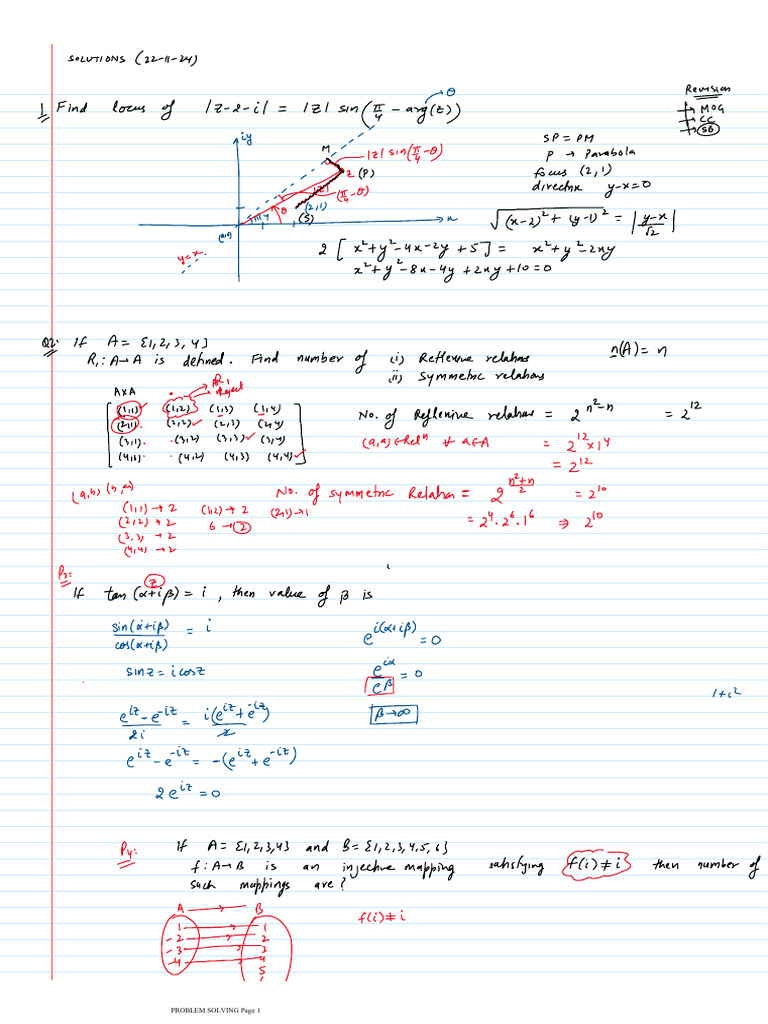 SOLUTIONS (22-11-24)
Revision
MOG
CC
SB
1 Find locus of |z-2-i| = |z| sin(π/4 - arg(z)) → θ
iy
M
|z| sin(π/4-θ)
z (P)
|z|
(π/4-θ)
θ
π/4
(2,1)
(S)
(0,0)
x
y=x
SP = PM
P → Parabola
focus (2,1)
directrix y-x=0
√((x-2)²+(y-1)²) = |y-x/√2|
2[x²+y²-4x-2y+5] = x²+y²-2xy
x²+y²-8x-4y+2xy+10=0
Q2: If A = {1,2,3,4}
R₁: A→A is defined. Find number of (i) Reflexive relations
(ii) Symmetric relations
n(A) = n
AxA
Reject
(1,1) (1,2) (1,3) (1,4)
(2,1) (2,2) (2,3) (2,4)
(3,1) (3,2) (3,3) (3,4)
(4,1) (4,2) (4,3) (4,4)
No. of Reflexive relations = 2^(n²-n) = 2^12
(a,a) ∈ Relⁿ ∀ a∈A = 2^12 × 1^4
= 2^12
(a,b) (b,a)
(1,1) → 2 (1,2) → 2 (2,1) → 1
(2,2) → 2 6 → 2
(3,3) → 2
(4,4) → 2
No. of symmetric Relations = 2^((n²+n)/2) = 2^10
= 2^4 · 2^6 · 1^6 ⇒ 2^10
P3:
z
If tan(α+iβ) = i, then value of β is
sin(α+iβ)/cos(α+iβ) = i
sinz = i cosz
(e^iz - e^-iz)/2i = i(e^iz + e^-iz)/2
e^iz - e^-iz = -(e^iz + e^-iz)
2e^iz = 0
e^i(α+iβ) = 0
e^iα/e^β = 0
β→∞
1+i²
P4: If A = {1,2,3,4} and B = {1,2,3,4,5,6}
f: A→B is an injective mapping satisfying f(i) ≠ i then number of
such mappings are?
A → B
f(i) ≠ i
1 1
2 2
3 3
4 4
5
PROBLEM SOLVING Page 1